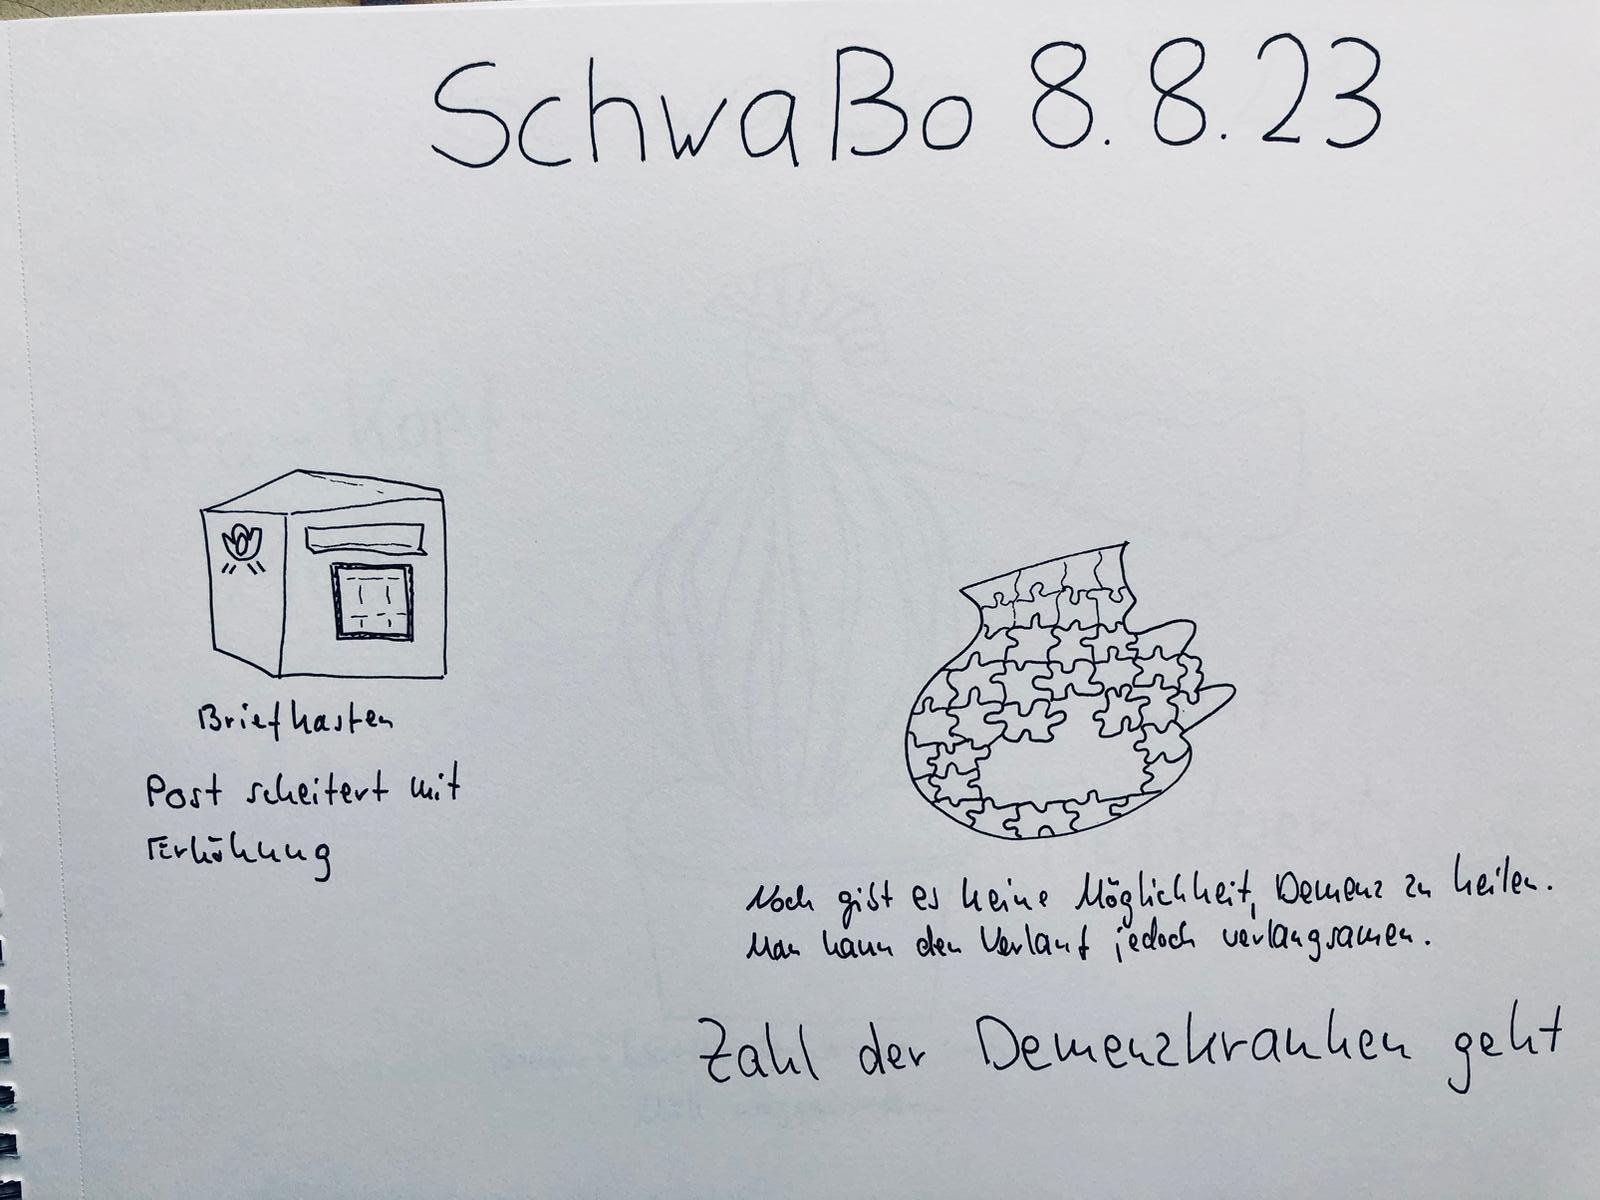 SchwaBo 8.8.23
Briefkasten
Post scheitert mit
Erhöhung
Noch gibt es keine Möglichkeit, Demenz zu heilen.
Man kann den Verlauf jedoch verlangsamen.
Zahl der Demenzkranken geht